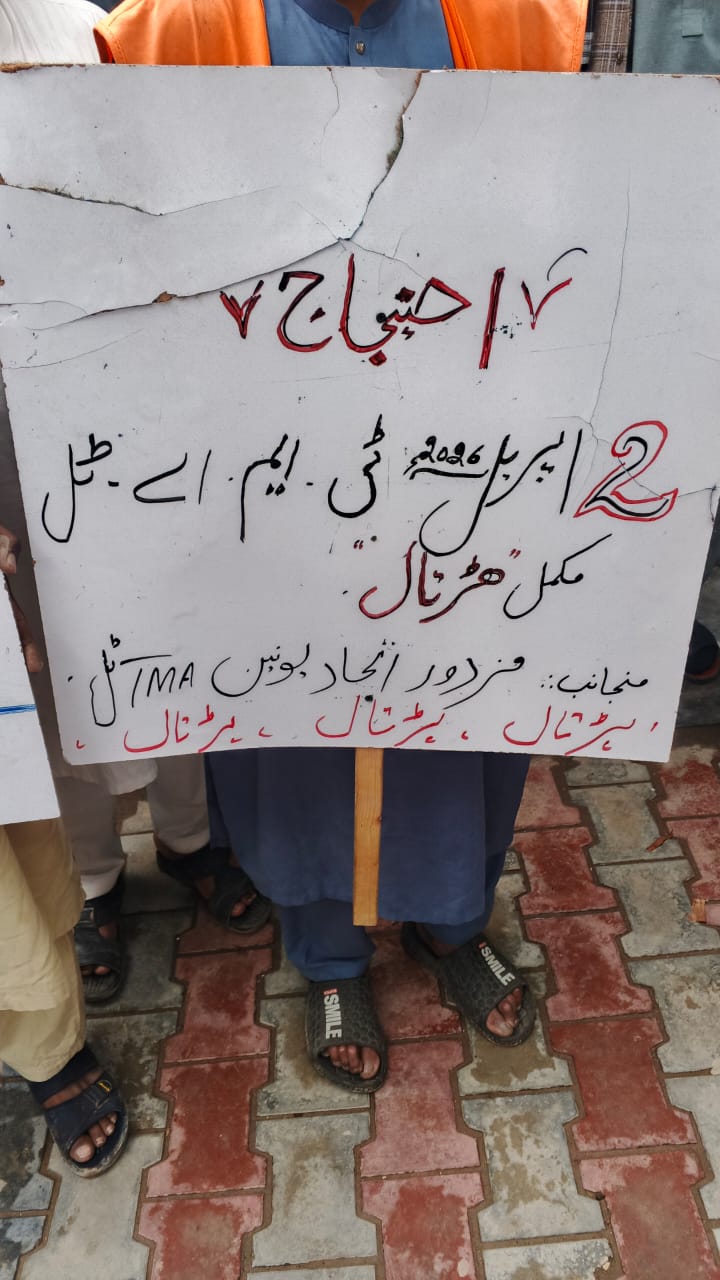 احتجاج
2 اپریل 2026ء ٹی۔ ایم۔ اے۔ ٹل
مکمل "ھڑتال"
منجانب:: مزدور اتحاد یونین TMA ٹل
ہڑتال، ہڑتال، ہڑتال،
SMILE
SMILE